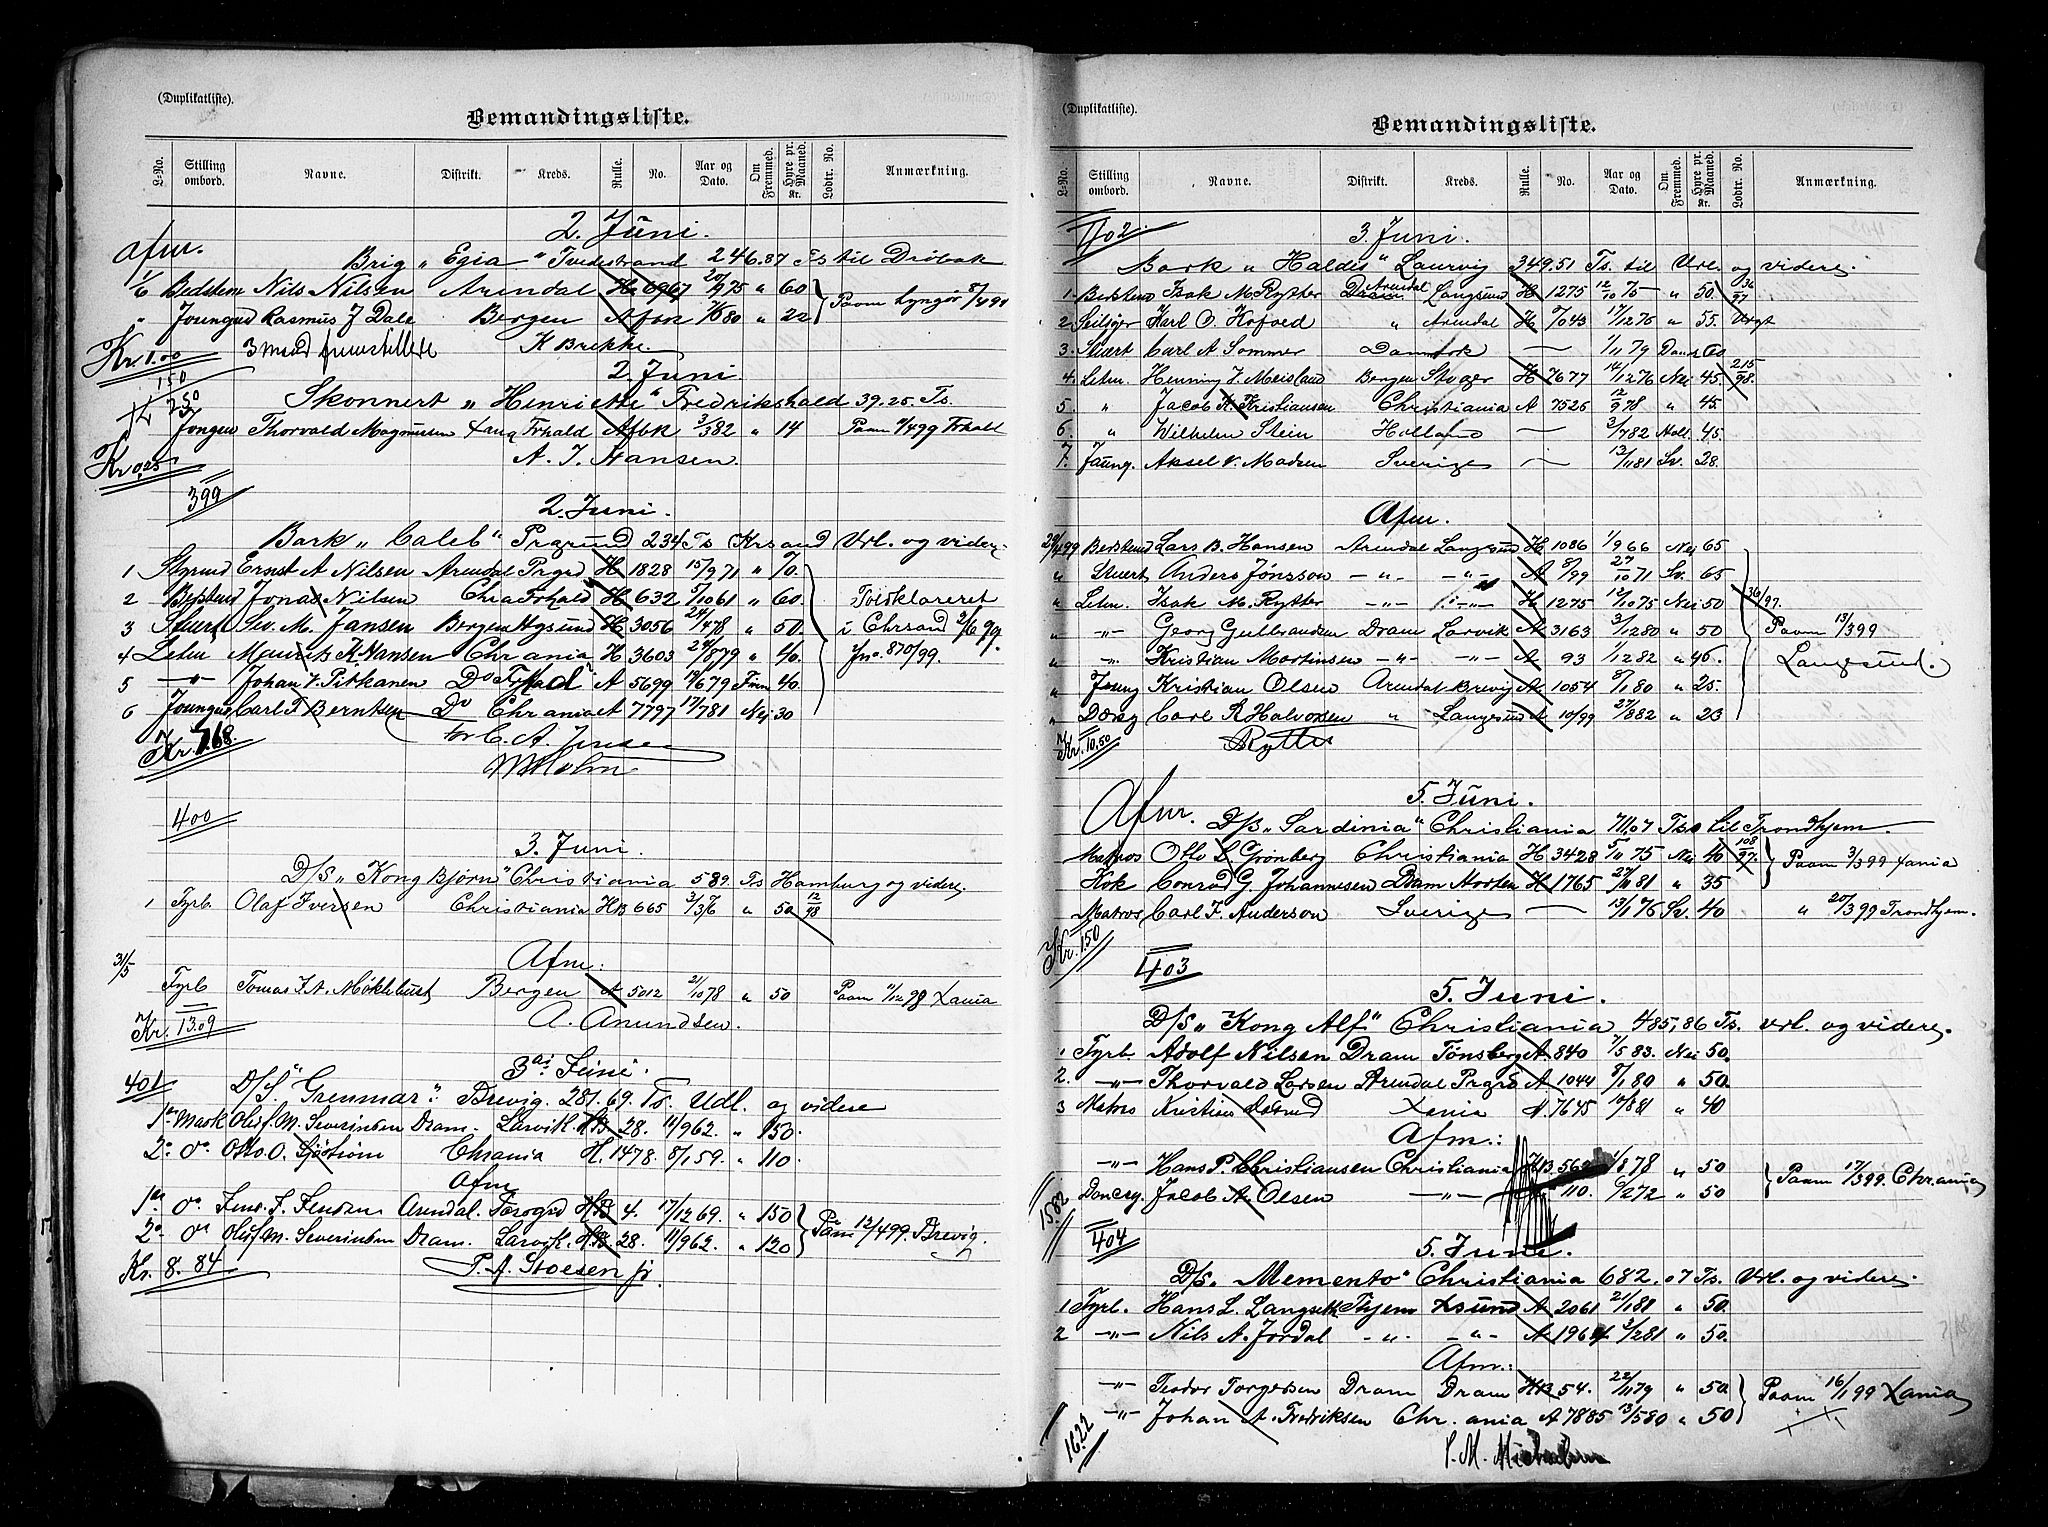 (Duplikatliste).
Bemandingsliste.
L-No. Stilling ombord. Navne. Distrikt. Kreds. Rulle. No. Aar og Dato. Om Fremmed. Hyre pr. Maaned. Kr. Lodtr. No. Anmærkning.
2. Juni.
Afm.
Brig „Egia“ Tvedestrand 246.87 Ts til Drøbak
1/6 Bedstem Nils Nilsen Arendal H 6967 20/9 75 „ 60
„ Joungmd Rasmus J Dale Bergen Afbk 80 „ 22 Paam Lyngør 8/4 99
Kr 1.00 3 mand fremstillede K Brekke.
2. Juni.
Skonnert „Henriette“ Fredrikshald 39.25. Ts.
Jongm Thorvald Magnussen Frhald Afbk 3/3 82 „ 14 Paam 4/4 99 Frhald
Kr 0.25 A. J. Hansen.
399
2. Juni.
Bark „Caleb“ Prgrund 234 Ts Krsand Url. og videre.
1 Styrmd Ernst A Nilsen Arendal Prgrd H 1828 15/9 71 „ 70.
2 Bestmd Jonas Nilsen Chra Frhald H 632 5/10 61 „ 60. Toldklareret
3 Stuert Sev. M. Jansen Bergen Hgsund H 3056 24/4 78 „ 50. i Chrsand 2/6 99.
4 Letm Maurits K. Hansen Chrania H 3603 24/8 79 „ 40. Jno. 870/99.
5 —„— Johan V. Pitkanen Do Frhald A 5699 17/6 79 Finn 40.
6 Joungm Carl F Berntsen Do Chrania A 7797 17/7 81 Nei 30
Kr. 7.68. for C. A. Jensen
M Holm
400
3. Juni.
D/S „Kong Bjørn“ Christiania 589 Ts Hamburg og videre.
1 Fyrb Olaf Iversen Christiania HB 665 2/3 76 „ 50 12/98
Afm:
31/5 Fyrb Tomas J. A. Møklebust Bergen A 5012 21/10 78 „ 50 Paam 1/12 98 Xania
Kr. 13.09 A. Amundsen.
3di Juni.
401 D/S. „Grenmar“: Brevig. 281.69. Ts. Udl. og videre
1ste Mask Oluf. M. Severinsen Dram. Larvik. HB 28. 11/9 62. „ 150.
2. do. Otto. O. Sjøstrøm Chrania H. 1478. 8/1 59. „ 110.
Afm
1ste do Jens. J. Jensen Arendal. Porsgrd HB 4. 17/12 69. „ 150
2. do Oluf. M. Severinsen Dram. Larvik. HB 28. 11/9 62. „ 120 Paam 12/4 99. Brevig.
Kr. 8.84 P. A. Stoesen jr.
(Duplikatliste).
Bemandingsliste.
L-No. Stilling ombord. Navne. Distrikt. Kreds. Rulle. No. Aar og Dato. Om Fremmed. Hyre pr. Maaned. Kr. Lodtr. No. Anmærkning.
402. 3. Juni.
Bark „Haldis“ Laurvig 349.51 Ts. til Url. og videre.
1. Bestmd Isak M. Rytter Arendal Langsund H 1275 12/10 75 — „ 50. 36/97
2 Seilgjør Karl O. Kofoed „ Arendal H 7043 17/12 75 „ 55. Uvgt
3. Stuert Carl A Sommer Danmark — 1/11 79 Dansk 60
4. Letm. Henning J. Meisland Bergen Stvger H 7677 14/12 76 Nei 45. 215/98.
5. „ Jacob K. Kristiansen Christiania A 7526 12/9 78 „ 45.
6. „ Wilhelm Stein Holland — 3/7 82 Holl. 45.
7. Joung. Aksel V. Madsen Sverige — 12/11 81 Sv. 28.
Afm.
29/4 99 Bedstemd Lars B. Hansen Arendal Langesund H 1086 1/9 66 Nei 65
„ Stuert Anders Jønsson —„— —„— A 8/99 27/10 71 Sv. 65
„ Letm. Isak M. Rytter —„— —„— H 1275 12/10 75 Nei 50 36/97.
„ —„— Georg Gulbrandsen Dram Larvik A 3163 3/12 80 „ 50 Paam 13/3 99
„ —„— Kristian Martinsen —„— —„— A 93 1/12 82 „ 46. Langesund.
„ Joung Kristian Olsen Arendal Brevig A 1054 8/1 80 „ 25.
„ Dæksg Carl R Halvorsen „ Langesund A 10/99 27/8 82 „ 23
Kr. 10.50 Rytter
5. Juni.
Afm. D/S „Sardinia“ Christiania 711.07 Ts til Trondhjem.
Matros Otto L. Grønberg Christiania H 3428 5/11 75 Nei 40 108/97. Paam 3/3 99 Xania
Kok Conrad G. Johannesen Dram Horten H 1765 27/11 81 „ 35
Matros Carl F. Anderson Sverige — 13/1 76 Sv. 40 „ 20/3 99 Trondhjem.
Kr. 1.50
403
5. Juni.
D/S „Kong Alf“ Christiania 485,86 Ts. Url. og videre.
1 Fyrb. Adolf Nilsen Dram Tønsberg A 840 7/5 83. Nei 50.
2. —„— Thorvald Larsen Arendal Prgrd A 1044 8/1 80 „ 50.
3 Matros Kristian Xania A 7645 10/8 81 „ 40
Afm:
—„— Hans P. Christiansen Christiania HB 562 1/8 78 „ 50 Paam 17/3 99. Chrania
Donkey. Jacob A. Olsen —„— 110. 6/2 72 „ 50
15.82
404 5. Juni.
D/S. „Memento“ Christiania 682.07 Ts. Url. og videre.
1 Fyrb. Hans L. Langseth Thjem Xsund A 2061 21/1 81 „ 50.
2 —„— Nils A. Jordal —„— —„— A 1964 3/2 81 „ 50.
Afm:
—„— Teodor Torgersen Dram Dram HB 54. 22/11 79 „ 50. Paam 16/1 99 Xania
—„— Johan A. Fredriksen Chr.ania A 7885 13/5 80 „ 50
16.22